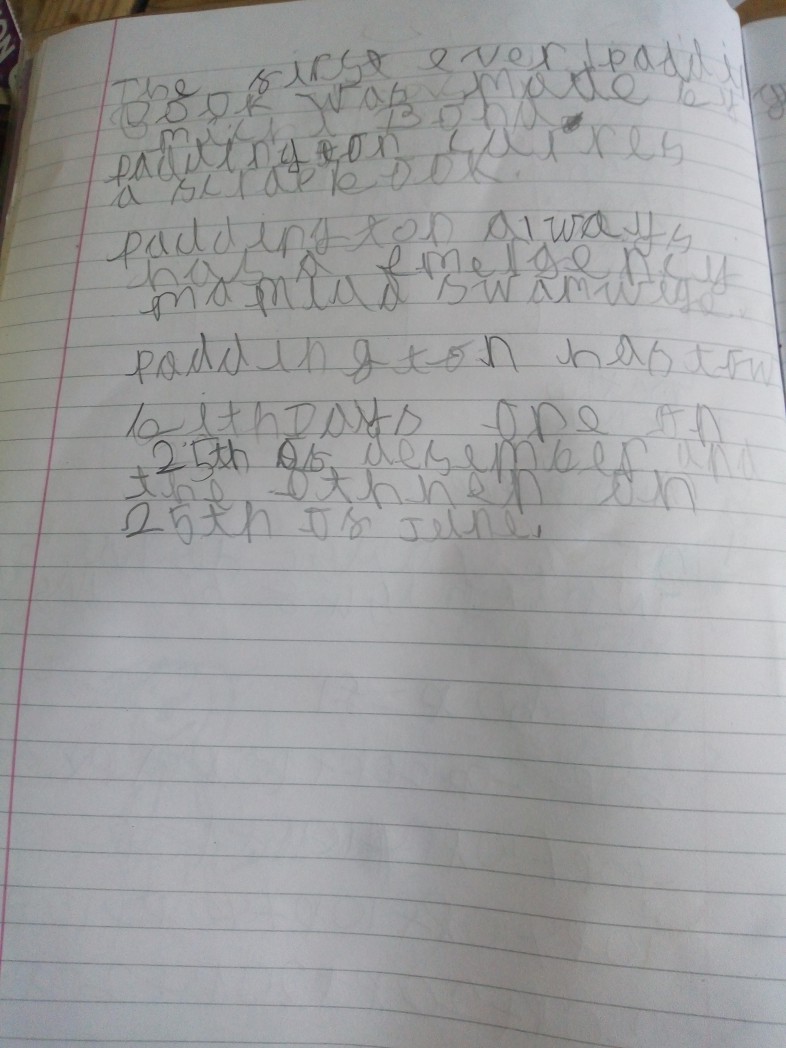 The first ever paddi
Book was made by
Bond.
paddington cuires
a scrapbook.
paddington always
has a emergency
mamlad swamwige.
paddington has tow
bithDays one on
25th of desember and
the othher on
25th of June.